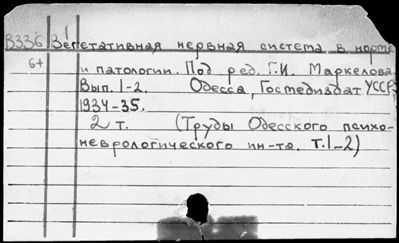 В336 Вегетативная нервная система в норме
6+ и патологии. Под ред. Г.И. Маркелова
Вып. 1-2. Одесса, Госмедиздат УССР,
1934-35.
2 т. (Труды Одесского психо-
неврологического ин-та. Т.1-2)